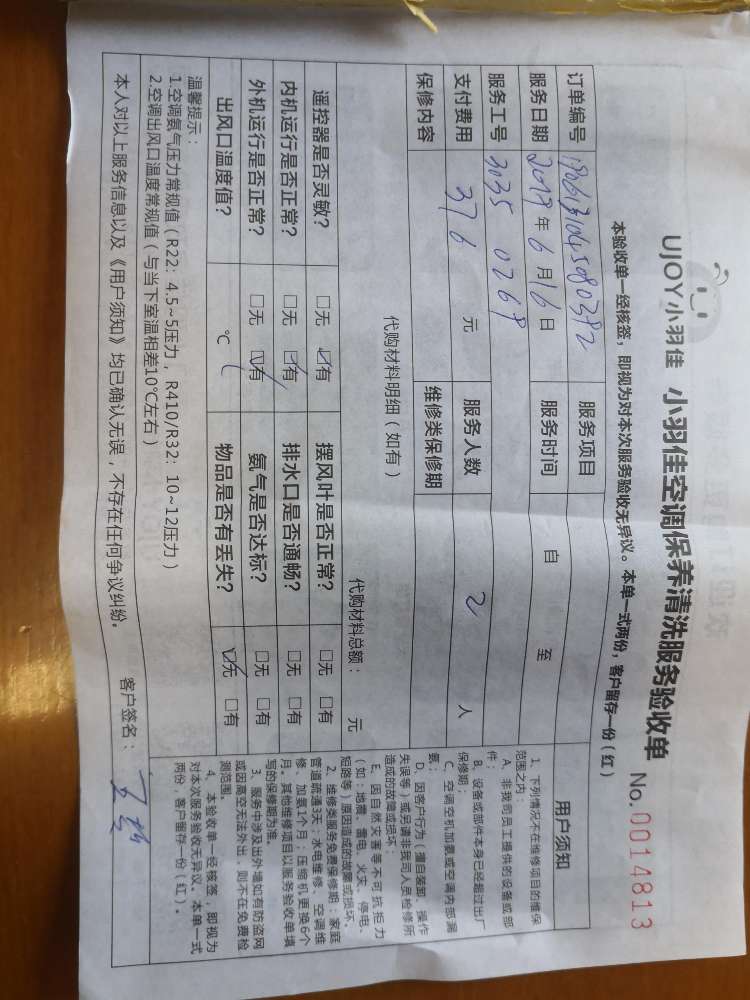 UJOY小羽佳 小羽佳空调保养清洗服务验收单 No.0014813
本验收单一经核签，即视为对本次服务验收无异议。本单一式两份，客户留存一份（红）
订单编号 服务项目
服务日期 年 6 月 16 日 服务时间 自 至
服务工号 3035 0269
支付费用 376 元 服务人数 2 人
保修内容 维修类保修期
代购材料明细（如有） 代购材料总额： 元
遥控器是否灵敏？ □无 ☑有 摆风叶是否正常？ □无 □有
内机运行是否正常？ □无 ☑有 排水口是否通畅？ □无 □有
外机运行是否正常？ □无 ☑有 氨气是否达标？ □无 □有
出风口温度值？ ℃ 物品是否有丢失？ ☑无 □有
温馨提示：
1.空调氨气压力常规值（R22：4.5~5压力，R410/R32：10~12压力）
2.空调出风口温度常规值（与当下室温相差10℃左右）
本人对以上服务信息以及《用户须知》均已确认无误，不存在任何争议纠纷。 客户签名：
用户须知
1、下列情况不在维修项目的维保
范围之内：
A、非我司员工提供的设备或部
件；
B、设备或部件本身已经超过出厂
保修期；
C、空调空机加氨或空调内部漏
氨；
D、因客户行为（擅自装卸、操作
失误等）或另请非我司人员检修所
造成的故障或损坏；
E、因自然灾害等不可抗拒力
（如：地震、雷电、火灾、停电、
短路等）原因造成的故障或损坏。
2、维修类服务免费保修期：家庭
管道疏通3天；水电维修、空调维
修、加氨1个月；压缩机更换6个
月。其他维修项目以服务验收单填
写的保修期为准。
3、服务中涉及出外墙如有防盗网
或因高空无法外出，则不在免费检
测范围
4、本验收单一经核签，即视为
对本次服务验收无异议。本单一式
两份，客户留存一份（红）。